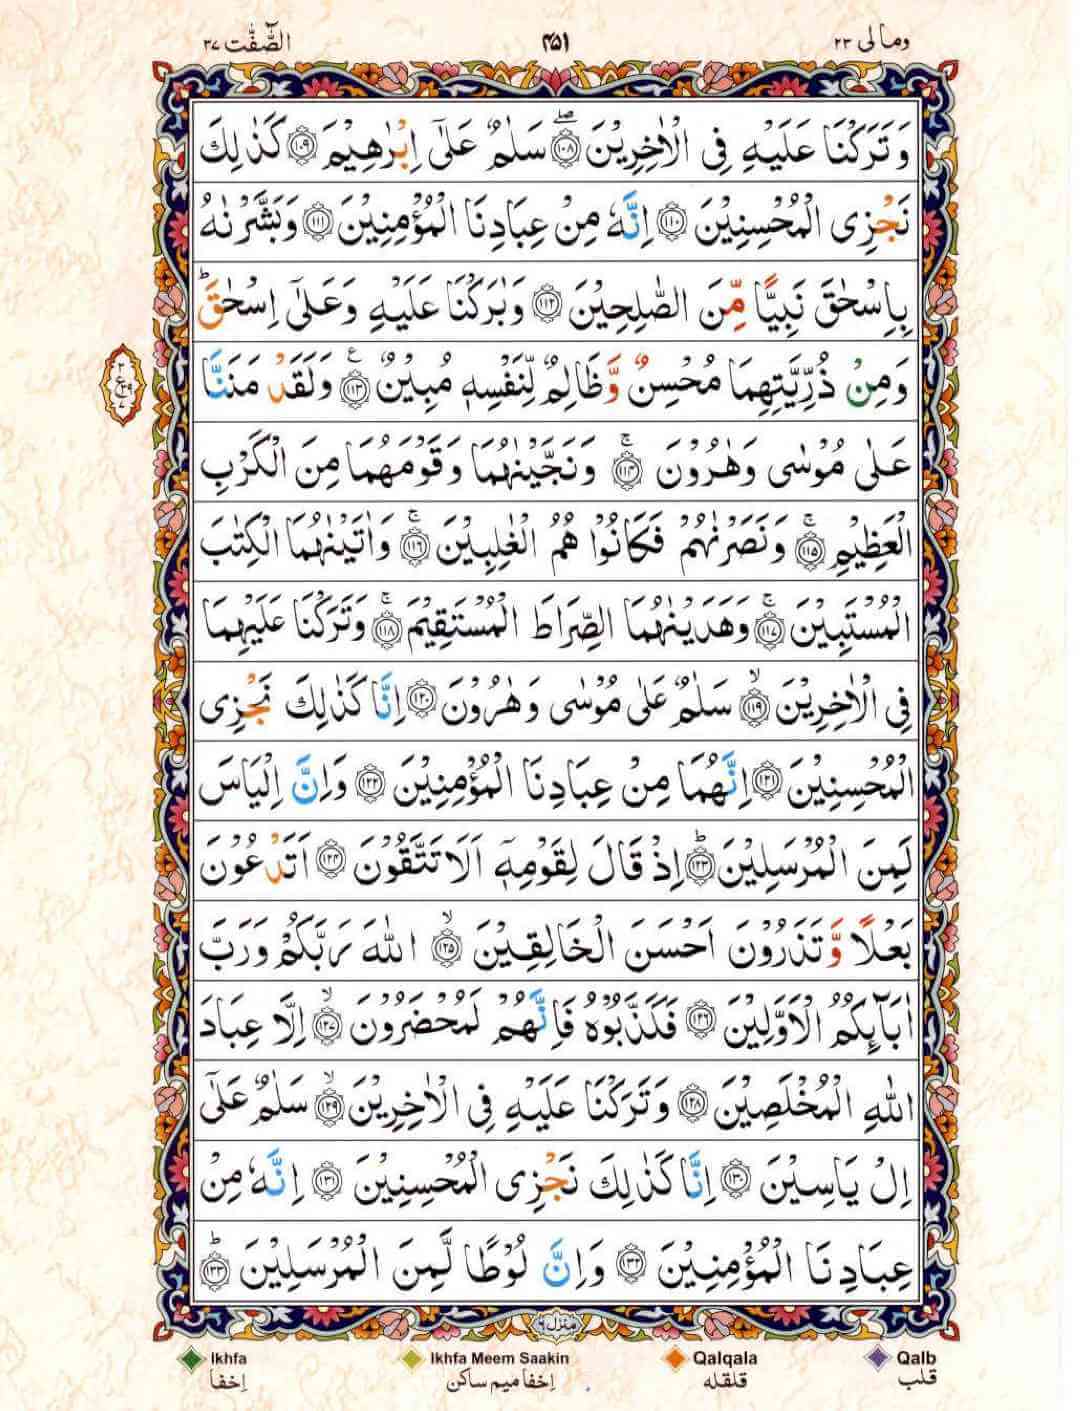 ومالی ۲۳
۴۵۱
الصّٰفّٰت ۳۷
وَتَرَكْنَا عَلَيْهِ فِى الْاٰخِرِيْنَ ۖ‏﴿۱۰۸﴾ سَلٰمٌ عَلٰٓى اِبْرٰهِيْمَ ﴿۱۰۹﴾ كَذٰلِكَ
نَجْزِى الْمُحْسِنِيْنَ ﴿۱۱۰﴾ اِنَّهٗ مِنْ عِبَادِنَا الْمُؤْمِنِيْنَ ﴿۱۱۱﴾ وَبَشَّرْنٰهُ
بِاِسْحٰقَ نَبِيًّا مِّنَ الصّٰلِحِيْنَ ﴿۱۱۲﴾ وَبٰرَكْنَا عَلَيْهِ وَعَلٰٓى اِسْحٰقَ ؕ
وَمِنْ ذُرِّيَّتِهِمَا مُحْسِنٌ وَّظَالِمٌ لِّنَفْسِهٖ مُبِيْنٌ ﴿۱۱۳﴾ ع وَلَقَدْ مَنَنَّا
عَلٰى مُوْسٰى وَهٰرُوْنَ ۚ‏﴿۱۱۴﴾ وَنَجَّيْنٰهُمَا وَقَوْمَهُمَا مِنَ الْكَرْبِ
الْعَظِيْمِ ۚ‏﴿۱۱۵﴾ وَنَصَرْنٰهُمْ فَكَانُوْا هُمُ الْغٰلِبِيْنَ ۚ‏﴿۱۱۶﴾ وَاٰتَيْنٰهُمَا الْكِتٰبَ
الْمُسْتَبِيْنَ ۚ‏﴿۱۱۷﴾ وَهَدَيْنٰهُمَا الصِّرَاطَ الْمُسْتَقِيْمَ ۚ‏﴿۱۱۸﴾ وَتَرَكْنَا عَلَيْهِمَا
فِى الْاٰخِرِيْنَ ۙ‏﴿۱۱۹﴾ سَلٰمٌ عَلٰى مُوْسٰى وَهٰرُوْنَ ﴿۱۲۰﴾ اِنَّا كَذٰلِكَ نَجْزِى
الْمُحْسِنِيْنَ ﴿۱۲۱﴾ اِنَّهُمَا مِنْ عِبَادِنَا الْمُؤْمِنِيْنَ ﴿۱۲۲﴾ وَاِنَّ اِلْيَاسَ
لَمِنَ الْمُرْسَلِيْنَ ؕ‏﴿۱۲۳﴾ اِذْ قَالَ لِقَوْمِهٖٓ اَلَا تَتَّقُوْنَ ﴿۱۲۴﴾ اَتَدْعُوْنَ
بَعْلًا وَّتَذَرُوْنَ اَحْسَنَ الْخَالِقِيْنَ ۙ‏﴿۱۲۵﴾ اللّٰهَ رَبَّكُمْ وَرَبَّ
اٰبَآئِكُمُ الْاَوَّلِيْنَ ﴿۱۲۶﴾ فَكَذَّبُوْهُ فَاِنَّهُمْ لَمُحْضَرُوْنَ ۙ‏﴿۱۲۷﴾ اِلَّا عِبَادَ
اللّٰهِ الْمُخْلَصِيْنَ ﴿۱۲۸﴾ وَتَرَكْنَا عَلَيْهِ فِى الْاٰخِرِيْنَ ۙ‏﴿۱۲۹﴾ سَلٰمٌ عَلٰٓى
اِلْ يَاسِيْنَ ﴿۱۳۰﴾ اِنَّا كَذٰلِكَ نَجْزِى الْمُحْسِنِيْنَ ﴿۱۳۱﴾ اِنَّهٗ مِنْ
عِبَادِنَا الْمُؤْمِنِيْنَ ﴿۱۳۲﴾ وَاِنَّ لُوْطًا لَّمِنَ الْمُرْسَلِيْنَ ؕ‏﴿۱۳۳﴾
منزل ۶
Ikhfa
Ikhfa Meem Saakin
Qalqala
Qalb
اِخفا
اِخفا میم ساکن
قلقله
قلب